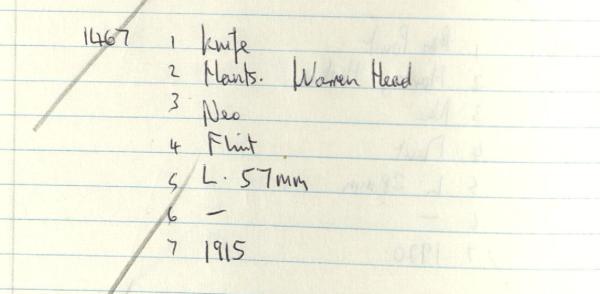 1467 1 Knife
2 Hants. Warren Head
3 Neo
4 Flint
5 L. 57mm
6 —
7 1915